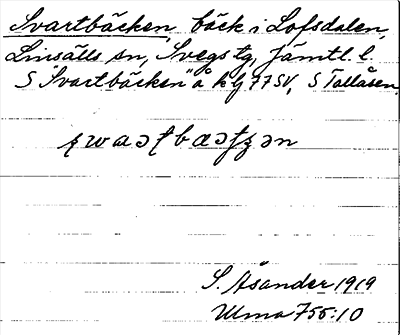 Svartbäcken, bäck i Lofsdalen,
Linsälls sn, Svegs tg, Jämtl. l.
S "Svartbäcken" å kbl 77 SV, S Tallåsen
S. Åsander 1919
Ulma 755:10